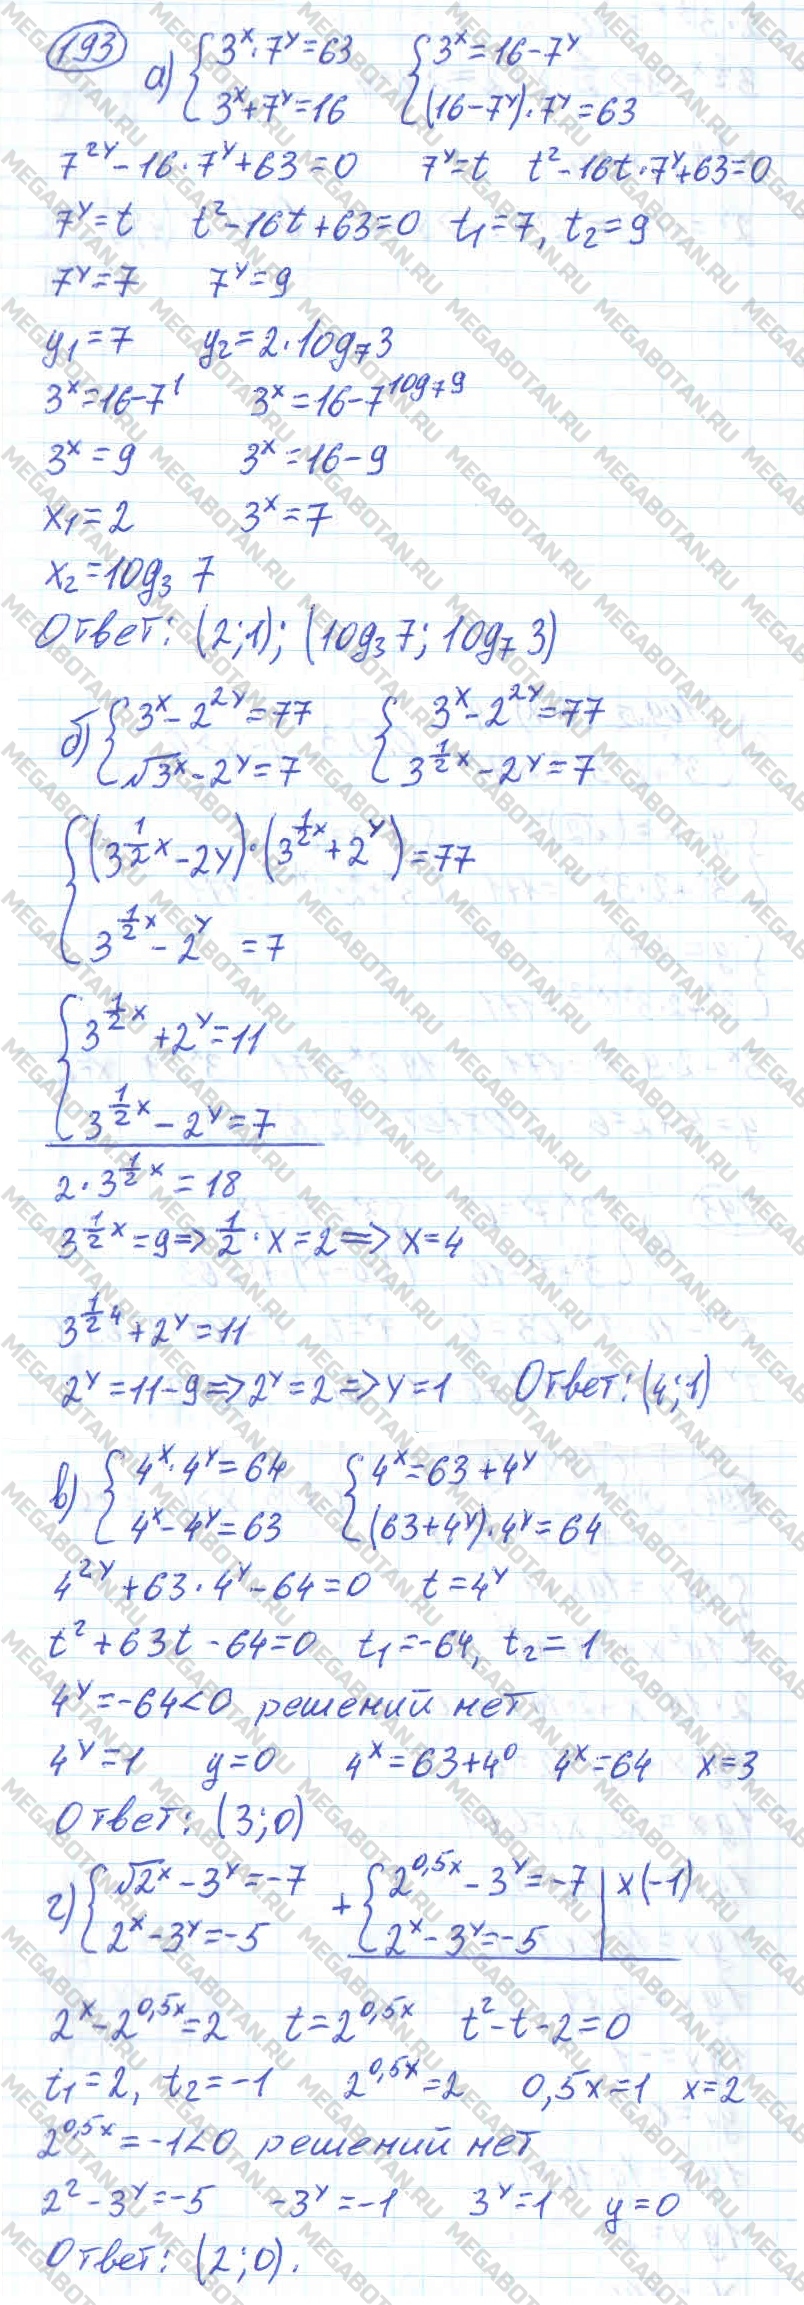 193
а) { 3^x·7^y=63   { 3^x=16-7^y
3^x+7^y=16   (16-7^y)·7^y=63
7^2y-16·7^y+63=0   7^y=t   t^2-16t·7^y+63=0
7^y=t   t^2-16t+63=0   t1=7, t2=9
7^y=7   7^y=9
y1=7   y2=2·log7 3
3^x=16-7^1   3^x=16-7^log7 9
3^x=9   3^x=16-9
x1=2   3^x=7
x2=log3 7
Ответ: (2;1); (log3 7; log7 3)
б) { 3^x-2^2y=77   { 3^x-2^2y=77
√3^x-2^y=7   3^(1/2 x)-2^y=7
{ (3^(1/2 x)-2y)·(3^(1/2 x)+2^y)=77
3^(1/2 x)-2^y=7
{ 3^(1/2 x)+2^y=11
3^(1/2 x)-2^y=7
2·3^(1/2 x)=18
3^(1/2 x)=9=>1/2·x=2=>x=4
3^(1/2 4)+2^y=11
2^y=11-9=>2^y=2=>y=1   Ответ: (4;1)
в) { 4^x·4^y=64   { 4^x=63+4^y
4^x-4^y=63   (63+4^y)·4^y=64
4^2y+63·4^y-64=0   t=4^y
t^2+63t-64=0   t1=-64, t2=1
4^y=-64<0 решений нет
4^y=1   y=0   4^x=63+4^0   4^x=64   x=3
Ответ: (3;0)
г) { √2^x-3^y=-7   + { 2^0,5x-3^y=-7 | x(-1)
2^x-3^y=-5   2^x-3^y=-5
2^x-2^0,5x=2   t=2^0,5x   t^2-t-2=0
t1=2, t2=-1   2^0,5x=2   0,5x=1   x=2
2^0,5x=-1<0 решений нет
2^2-3^y=-5   -3^y=-1   3^y=1   y=0
Ответ: (2;0).
MEGABOTAN.RU